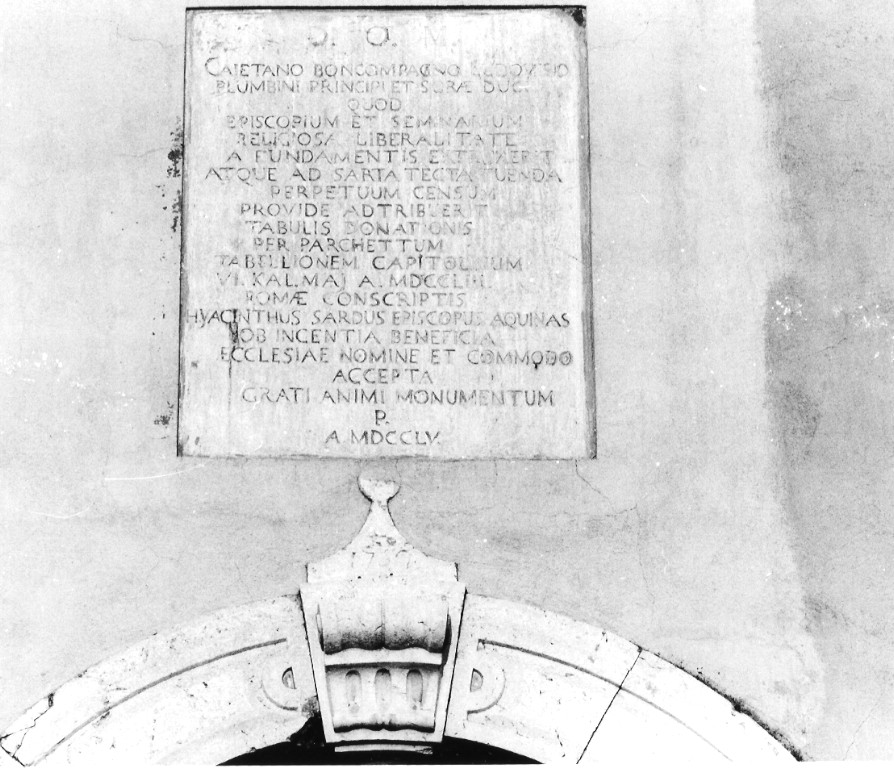 D. O. M.
CAIETANO BONCOMPAGNO LUDOVISIO
PLUMBINI PRINCIPI ET SORÆ DUCI
QUOD
EPISCOPIUM ET SEMINARIUM
RELIGIOSA LIBERALITATE
A FUNDAMENTIS EXTRUXERIT
ATQUE AD SARTA TECTA TUENDA
PERPETUUM CENSUM
PROVIDE ADTRIBUERIT
TABULIS DONATIONIS
PER PARCHETTUM
TABELLIONEM CAPITOLINUM
VI. KAL. MAJ A.
ROMÆ CONSCRIPTIS
HYACINTHUS SARDUS EPISCOPUS AQUINAS
OB INGENTIA BENEFICIA
ECCLESIAE NOMINE ET COMMODO
ACCEPTA
GRATI ANIMI MONUMENTUM
P.
A. MDCCLV.